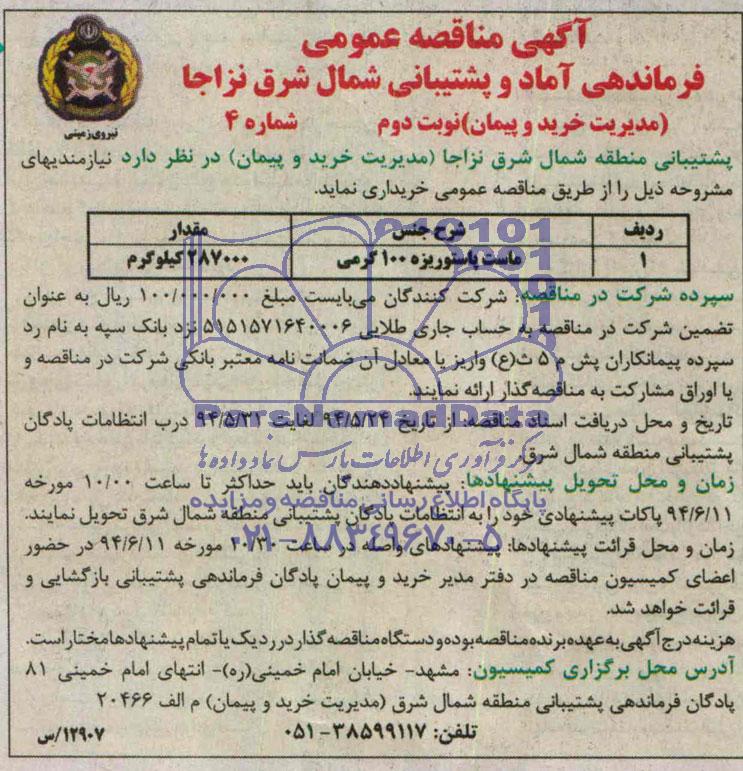 آگهی مناقصه عمومی
فرماندهی آماد و پشتیبانی شمال شرق نزاجا
(مدیریت خرید و پیمان)نوبت دوم شماره ۴
نیروی زمینی
پشتیبانی منطقه شمال شرق نزاجا (مدیریت خرید و پیمان) در نظر دارد نیازمندیهای
مشروحه ذیل را از طریق مناقصه عمومی خریداری نماید.
ردیف شرح جنس مقدار
۱ ماست پاستوریزه ۱۰۰ گرمی ۲۸۷۰۰۰ کیلوگرم
سپرده شرکت در مناقصه: شرکت کنندگان می‌بایست مبلغ ۱۰۰/۰۰۰/۰۰۰ ریال به عنوان
تضمین شرکت در مناقصه به حساب جاری طلایی ۵۱۵۱۵۷۱۶۴۰۰۰۶ نزد بانک سپه به نام رد
سپرده پیمانکاران پش م ۵ ث(ع) واریز یا معادل آن ضمانت نامه معتبر بانکی شرکت در مناقصه و
یا اوراق مشارکت به مناقصه‌گذار ارائه نمایند.
تاریخ و محل دریافت اسناد مناقصه: از تاریخ ۹۴/۵/۲۴ لغایت ۹۴/۵/۳۱ درب انتظامات پادگان
پشتیبانی منطقه شمال شرق.
زمان و محل تحویل پیشنهادها: پیشنهاددهندگان باید حداکثر تا ساعت ۱۰/۰۰ مورخه
۹۴/۶/۱۱ پاکات پیشنهادی خود را به انتظامات پادگان پشتیبانی منطقه شمال شرق تحویل نمایند.
زمان و محل قرائت پیشنهادها: پیشنهادهای واصله در ساعت ۱۰/۳۰ مورخه ۹۴/۶/۱۱ در حضور
اعضای کمیسیون مناقصه در دفتر مدیر خرید و پیمان پادگان فرماندهی پشتیبانی بازگشایی و
قرائت خواهد شد.
هزینه درج آگهی به عهده برنده مناقصه بوده و دستگاه مناقصه گذار در رد یک یا تمام پیشنهادها مختار است.
آدرس محل برگزاری کمیسیون: مشهد- خیابان امام خمینی(ره)- انتهای امام خمینی ۸۱
پادگان فرماندهی پشتیبانی منطقه شمال شرق (مدیریت خرید و پیمان) م الف ۲۰۴۶۶
تلفن: ۳۸۵۹۹۱۱۷-۰۵۱
۱۲۹۰۷/س
ParsNamadData
مرکز فرآوری اطلاعات پارس نماد داده ها
پایگاه اطلاع رسانی مناقصه و مزایده
۰۲۱-۸۸۳۴۹۶۷۰-۵